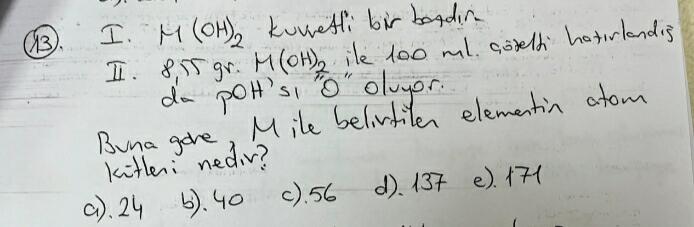 13). I. M(OH)2 kuvvetli bir bazdır
II. 8,55 gr. M(OH)2 ile 100 ml. çözelti hatırlandığ
da pOH'sı "0" oluyor.
Buna göre, M ile belirtilen elementin atom
kütlesi nedir?
a). 24 b). 40 c). 56 d). 137 e). 171